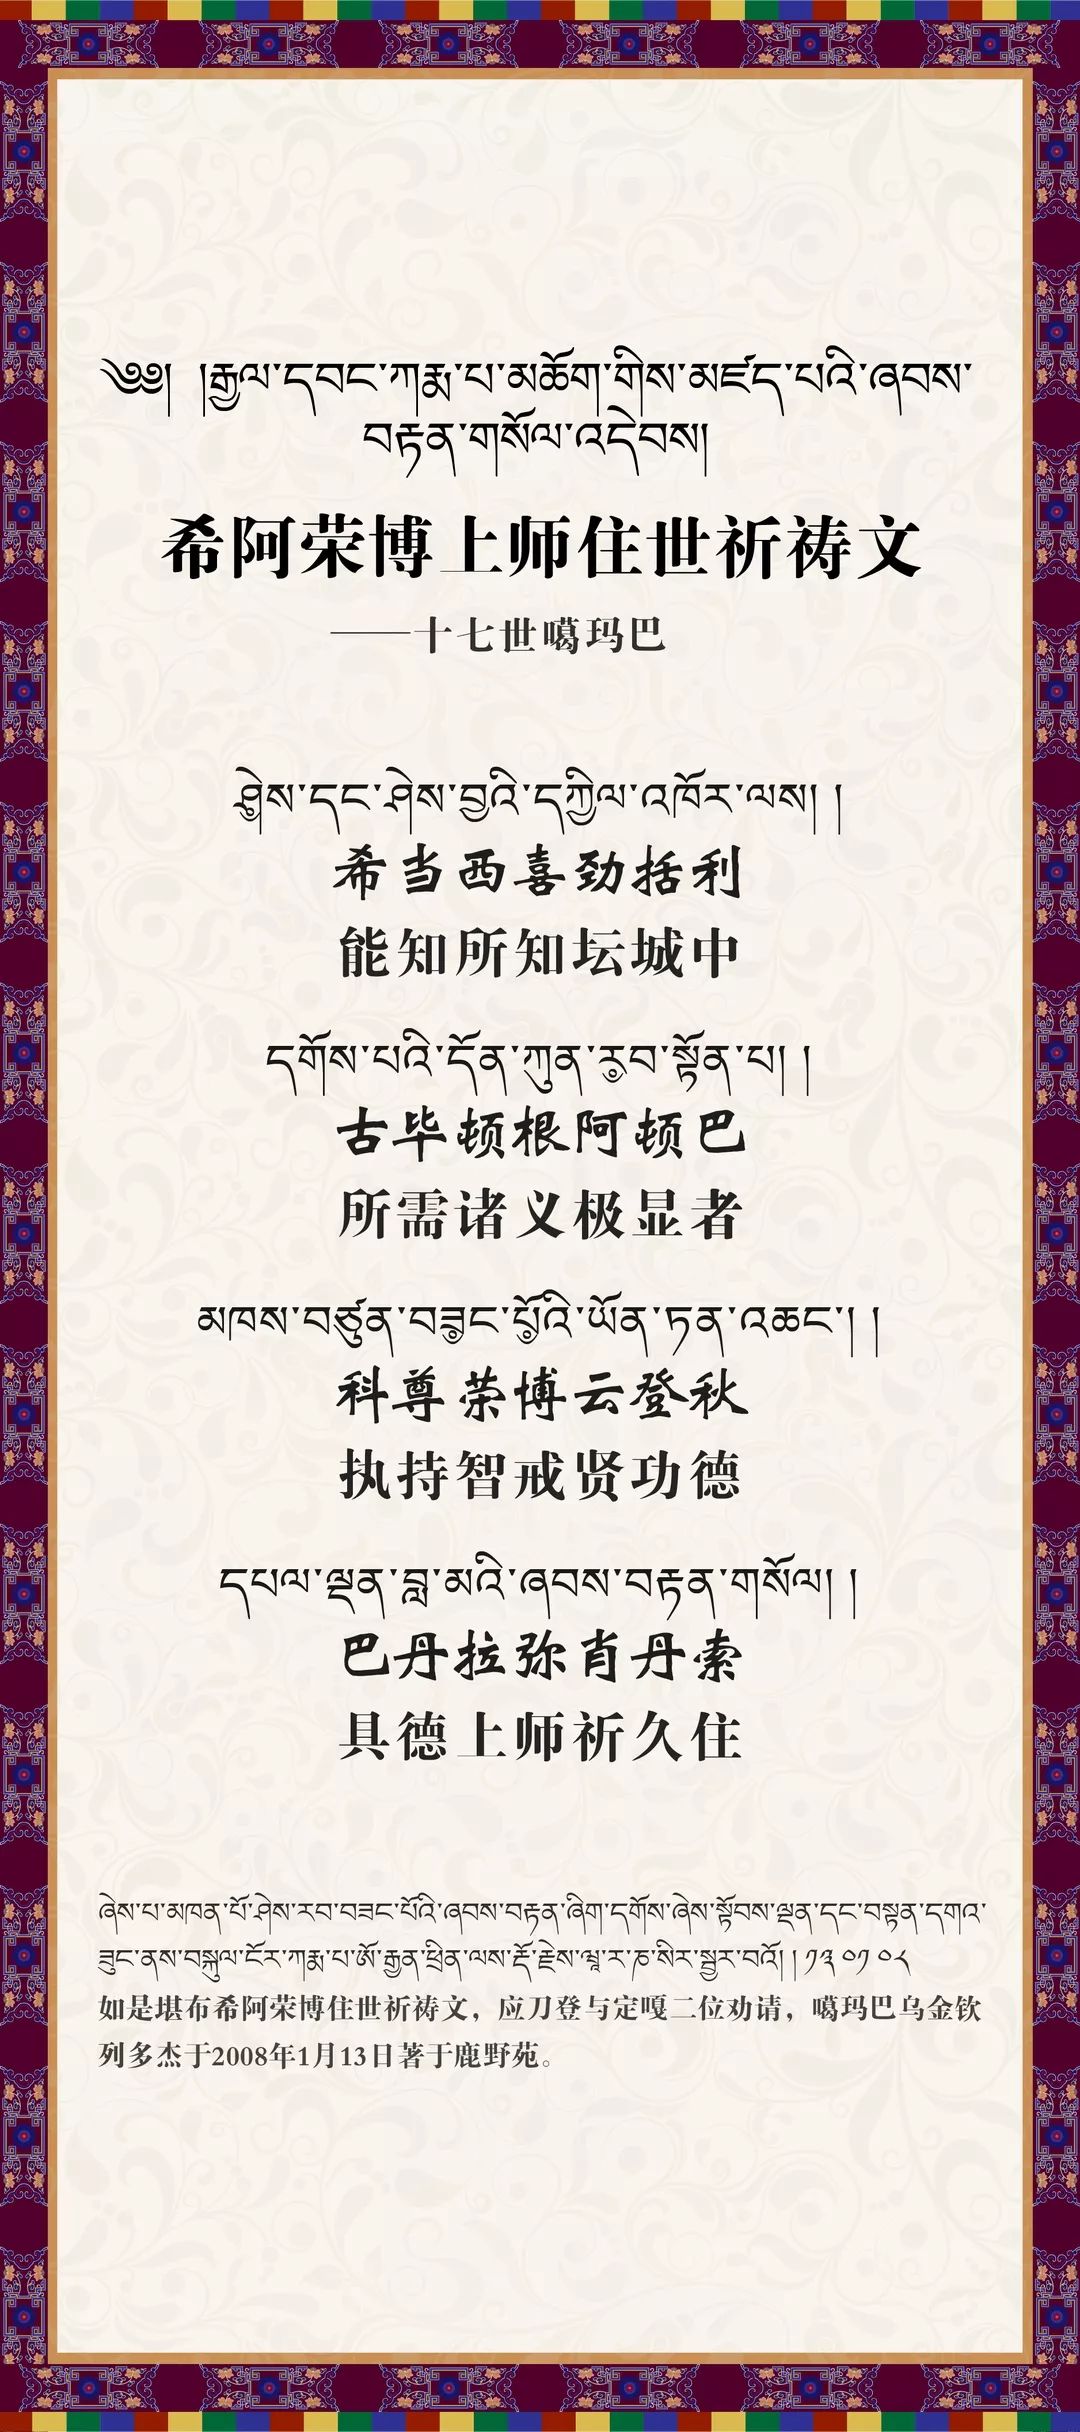 ༄༅། །རྒྱལ་དབང་ཀརྨ་པ་མཆོག་གིས་མཛད་པའི་ཞབས་
བརྟན་གསོལ་འདེབས།
希阿荣博上师住世祈祷文
——十七世噶玛巴
ཤེ༷ས་དང་ཤེས་བྱའི་དཀྱིལ་འཁོར་ལས། །
希当西喜劲括利
能知所知坛城中
དགོས་པའི་དོན་ཀུན་ར༷བ་སྟོན་པ། །
古毕顿根阿顿巴
所需诸义极显者
མཁས་བཙུན་བཟ༷ང་པོ༷འི་ཡོན་ཏན་འཆང་། །
科尊荣博云登秋
执持智戒贤功德
དཔལ་ལྡན་བླ་མའི་ཞབས་བརྟན་གསོལ། །
巴丹拉弥肖丹索
具德上师祈久住
ཞེས་པ་མཁན་པོ་ཤེས་རབ་བཟང་པོའི་ཞབས་བརྟན་ཞིག་དགོས་ཞེས་སྟོབས་ལྡན་དང་བསྟན་དགའ་
ཟུང་ནས་བསྐུལ་ངོར་ཀརྨ་པ་ཨོ་རྒྱན་ཕྲིན་ལས་རྡོ་རྗེས་སྦྱར་བའོ། ། ༡༣ ༠༡ ༠༨
如是堪布希阿荣博住世祈祷文，应刀登与定嘎二位劝请，噶玛巴乌金钦
列多杰于2008年1月13日著于鹿野苑。